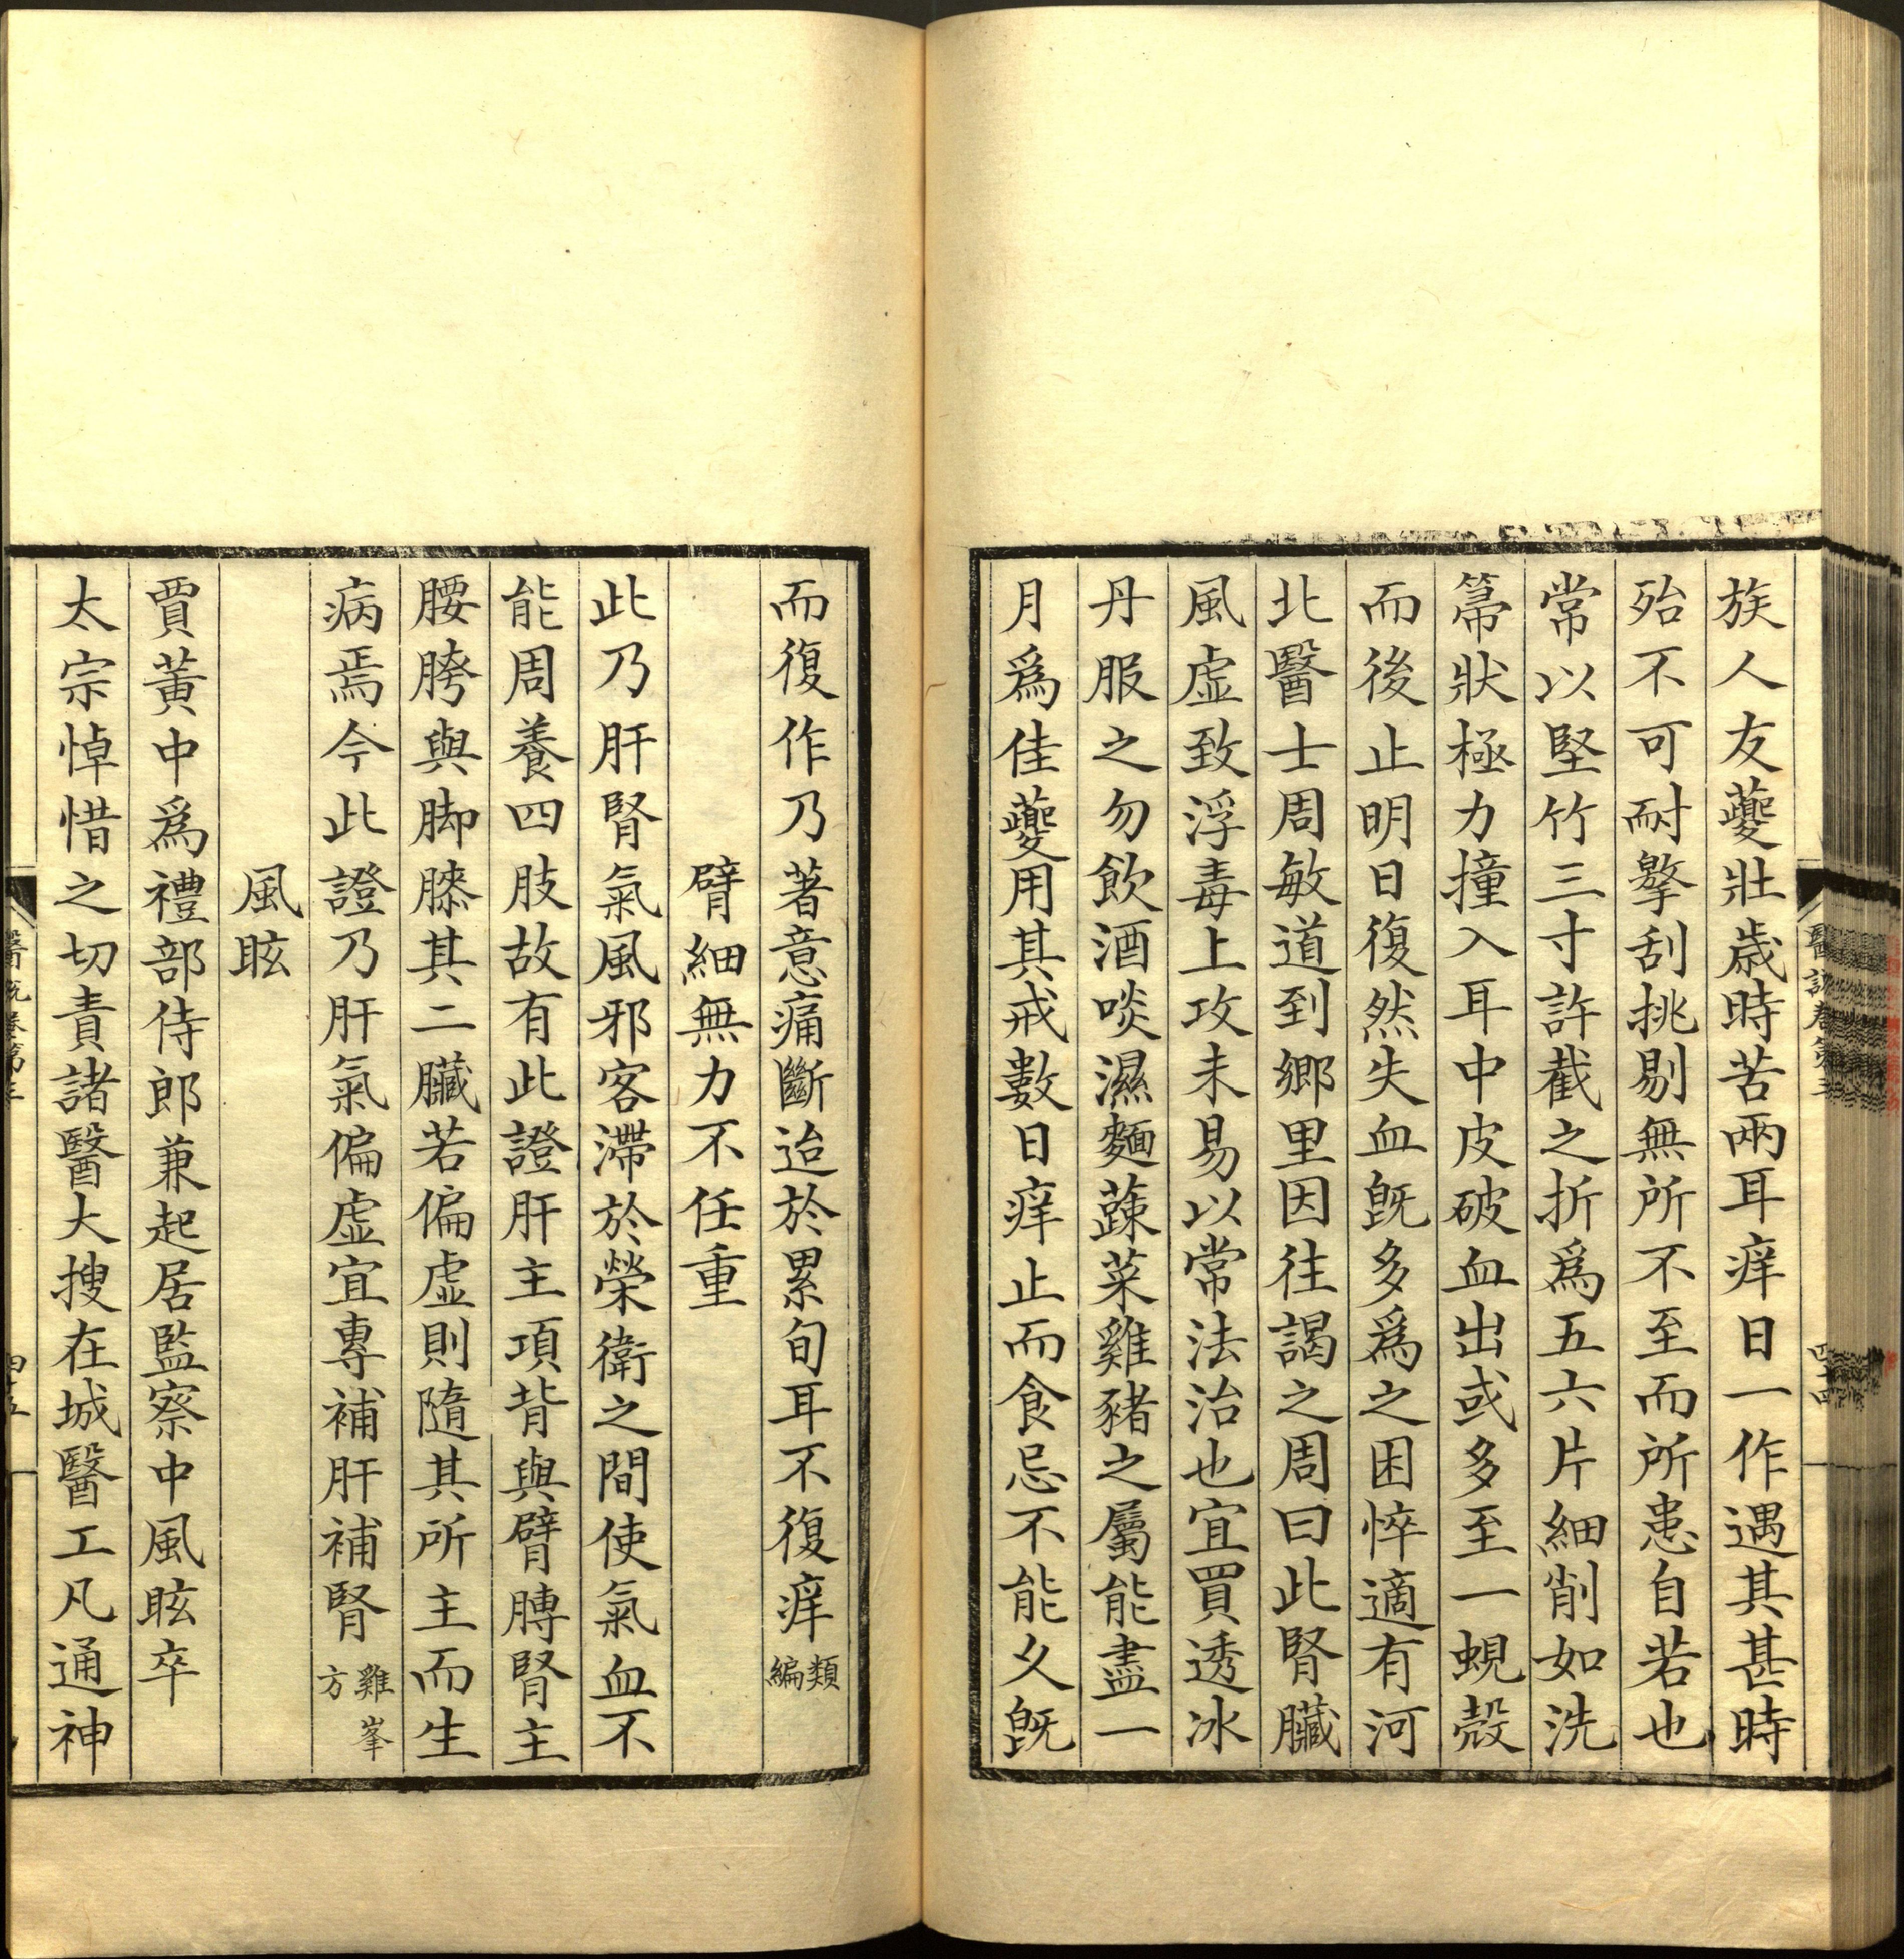 族人友夔壯歲時苦兩耳痒日一作遇其甚時
殆不可耐擊刮挑剔無所不至而所患自若也
常以堅竹三寸許截之折爲五六片細削如洗
箒狀極力撞入耳中皮破血出或多至一蜆殼
而後止明日復然失血旣多爲之困悴適有河
北醫士周敏道到鄉里因往謁之周曰此腎臟
風虛致浮毒上攻未易以常法治也宜買透冰
丹服之勿飲酒啖濕麵蔬菜雞豬之屬能盡一
月爲佳夔用其戒數日痒止而食忌不能久旣
而復作乃著意痛斷迨於累旬耳不復痒類編
臂細無力不任重
此乃肝腎氣風邪客滯於榮衛之間使氣血不
能周養四肢故有此證肝主項背與臂膊腎主
腰胯與脚膝其二臟若偏虛則隨其所主而生
病焉今此證乃肝氣偏虛宜專補肝補腎雞峯方
風眩
賈黃中爲禮部侍郎兼起居監察中風眩卒
太宗悼惜之切責諸醫大搜在城醫工凡通神